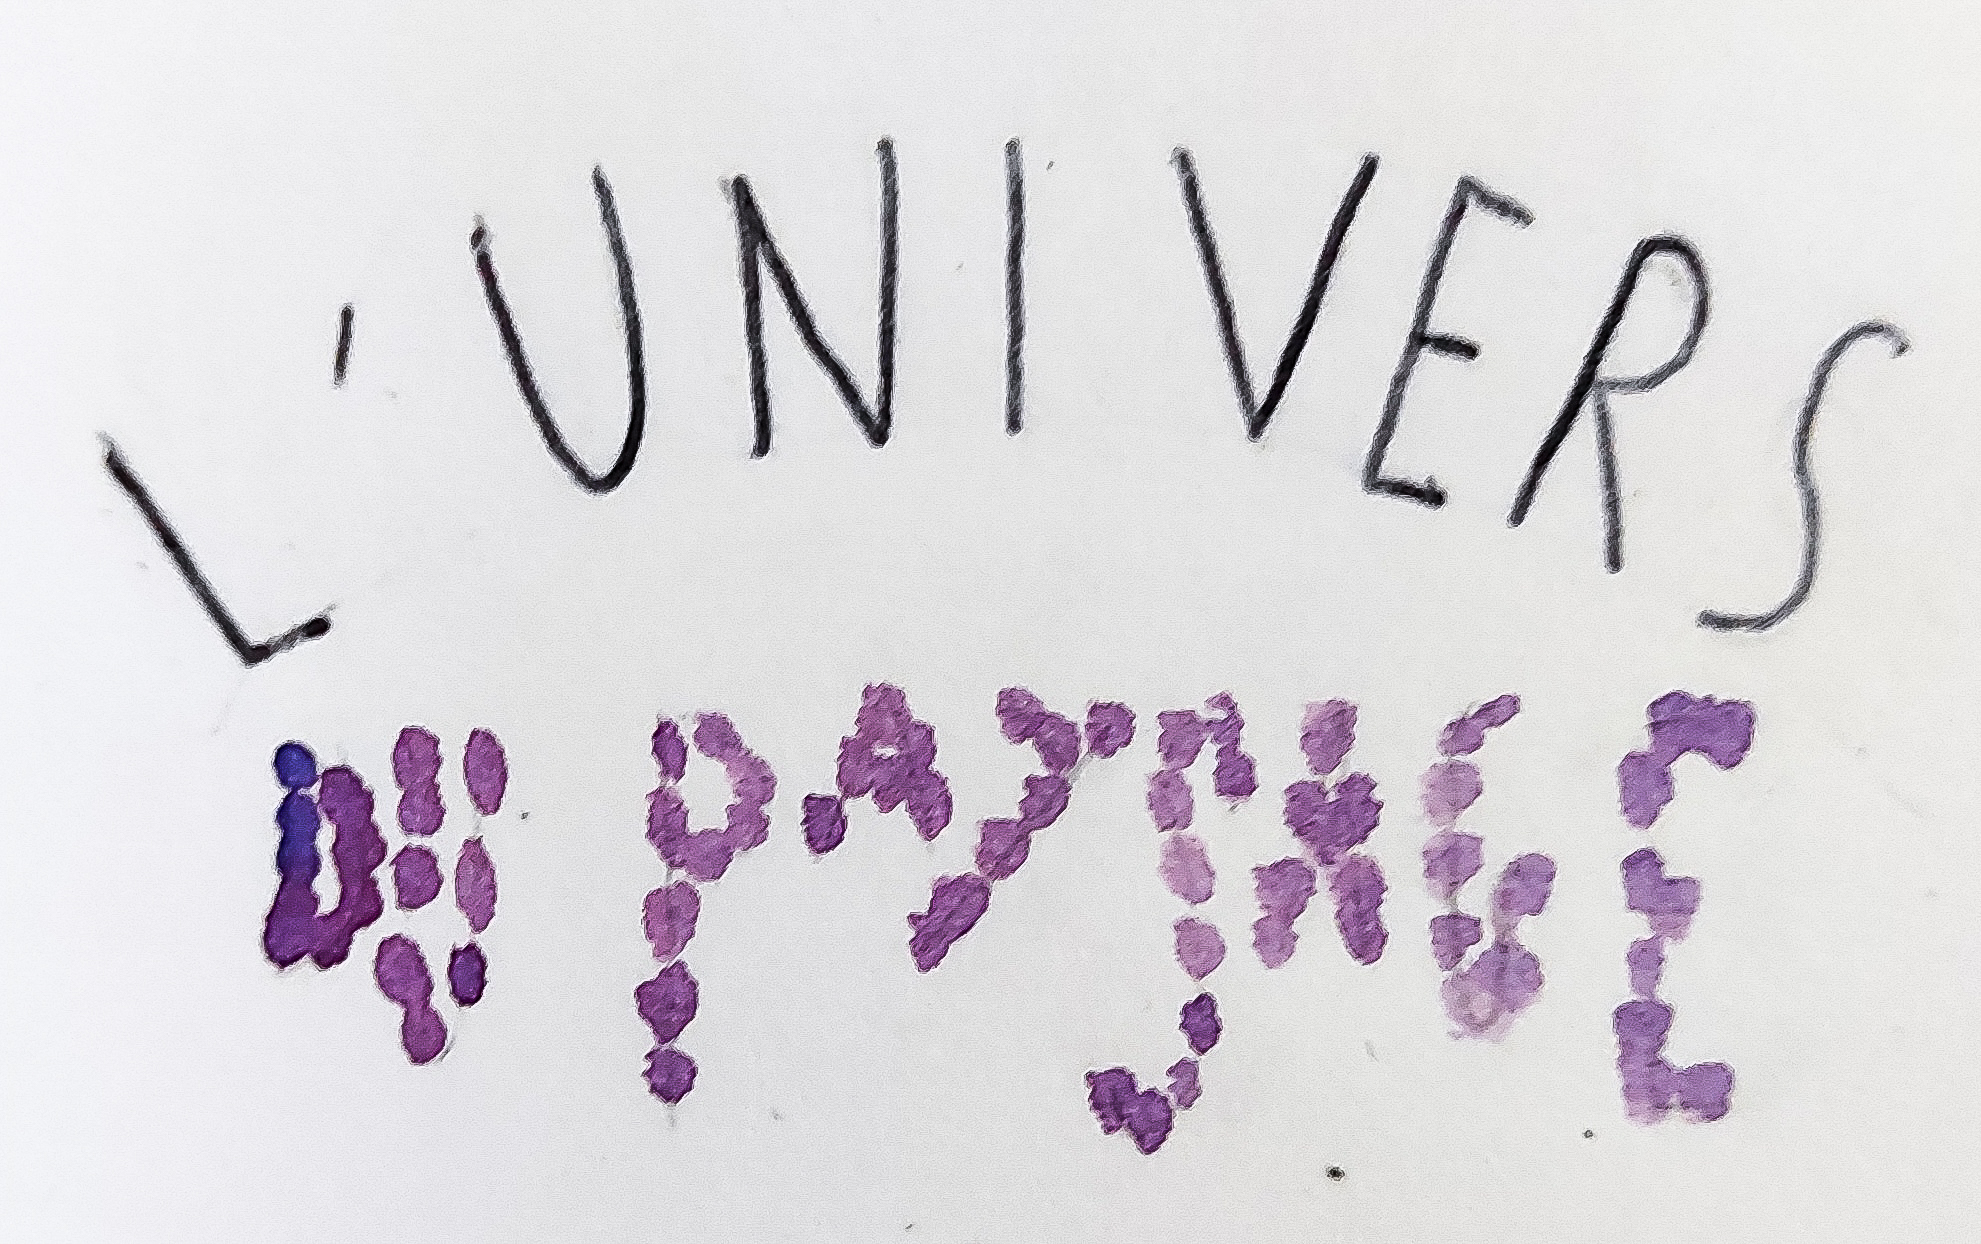 L'UNIVERS
DU PAYSAGE